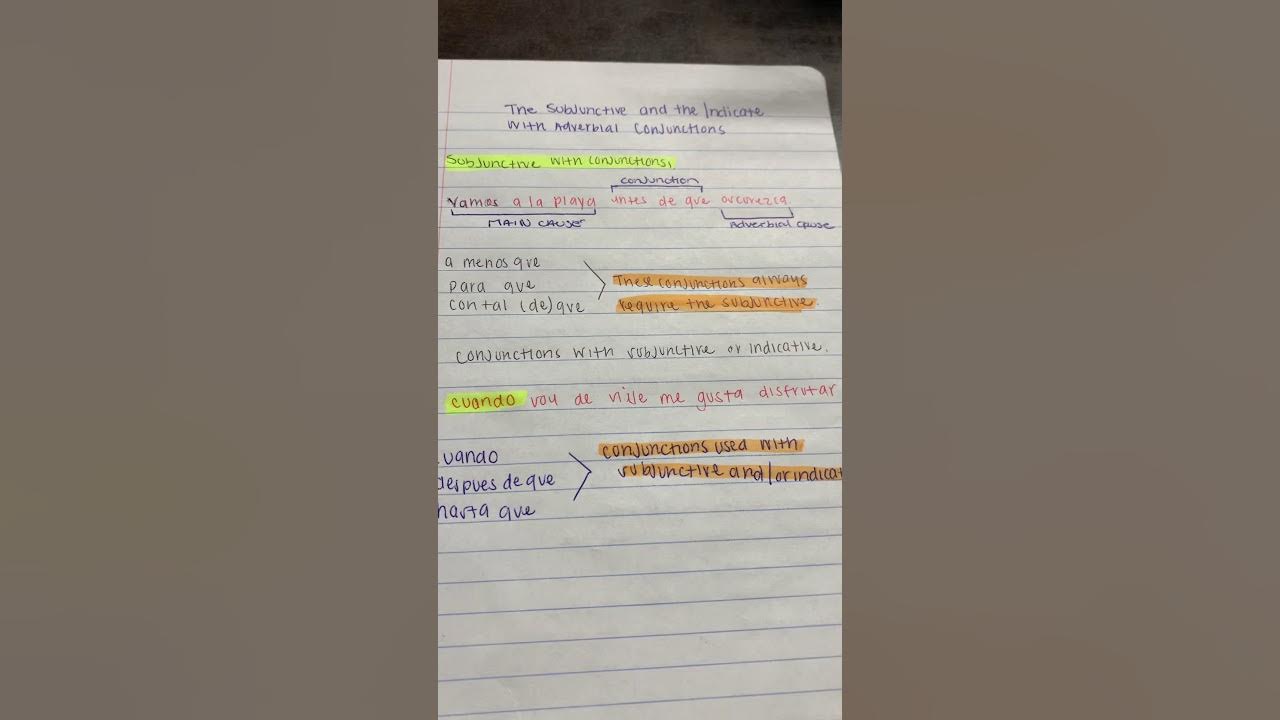 The Subjunctive and the Indicate
With Adverbial Conjunctions
Subjunctive with conjunctions.
conjunction
Vamos a la playa antes de que oscurezca.
MAIN CAUSE
Adverbial cause
a menos que
para que
con tal (de) que
These conjunctions always
require the subjunctive
Conjunctions with subjunctive or indicative.
cuando voy de viije me gusta disfrutar
uando
despues de que
hasta que
conjunctions used with
subjunctive and/or indicat